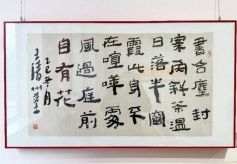 書台塵封
案角斜茶溫
日落半園
霞此身不
在喧嘩處
風過庭前
自有花